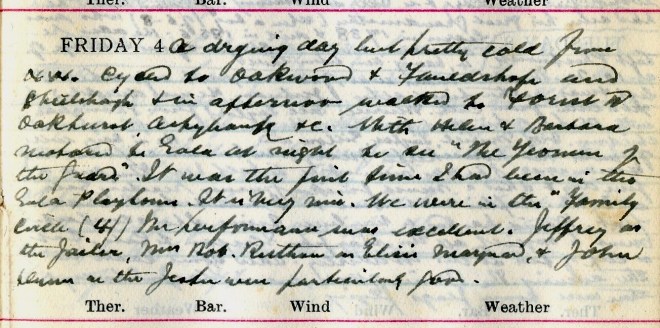 Ther. Bar. Wind Weather
FRIDAY 4 A drying day but pretty cold from
N.W. Cycled to Oakwood & Fauldshope and
& in afternoon walked to
Oakhurst, Ashybank &c. With Helen & Barbara
motored to Gala at night to see "The Yeomen of
the Guard". It was the first time I had been in the
Gala Playhouse. It is very nice. We were in the "Family
Circle (4/) The performance was excellent. Jeffrey as
the Jailer, Mrs Rob. Ruthven as Elsie Maynard, & John
as the Jester were particularly good.
Ther. Bar. Wind Weather